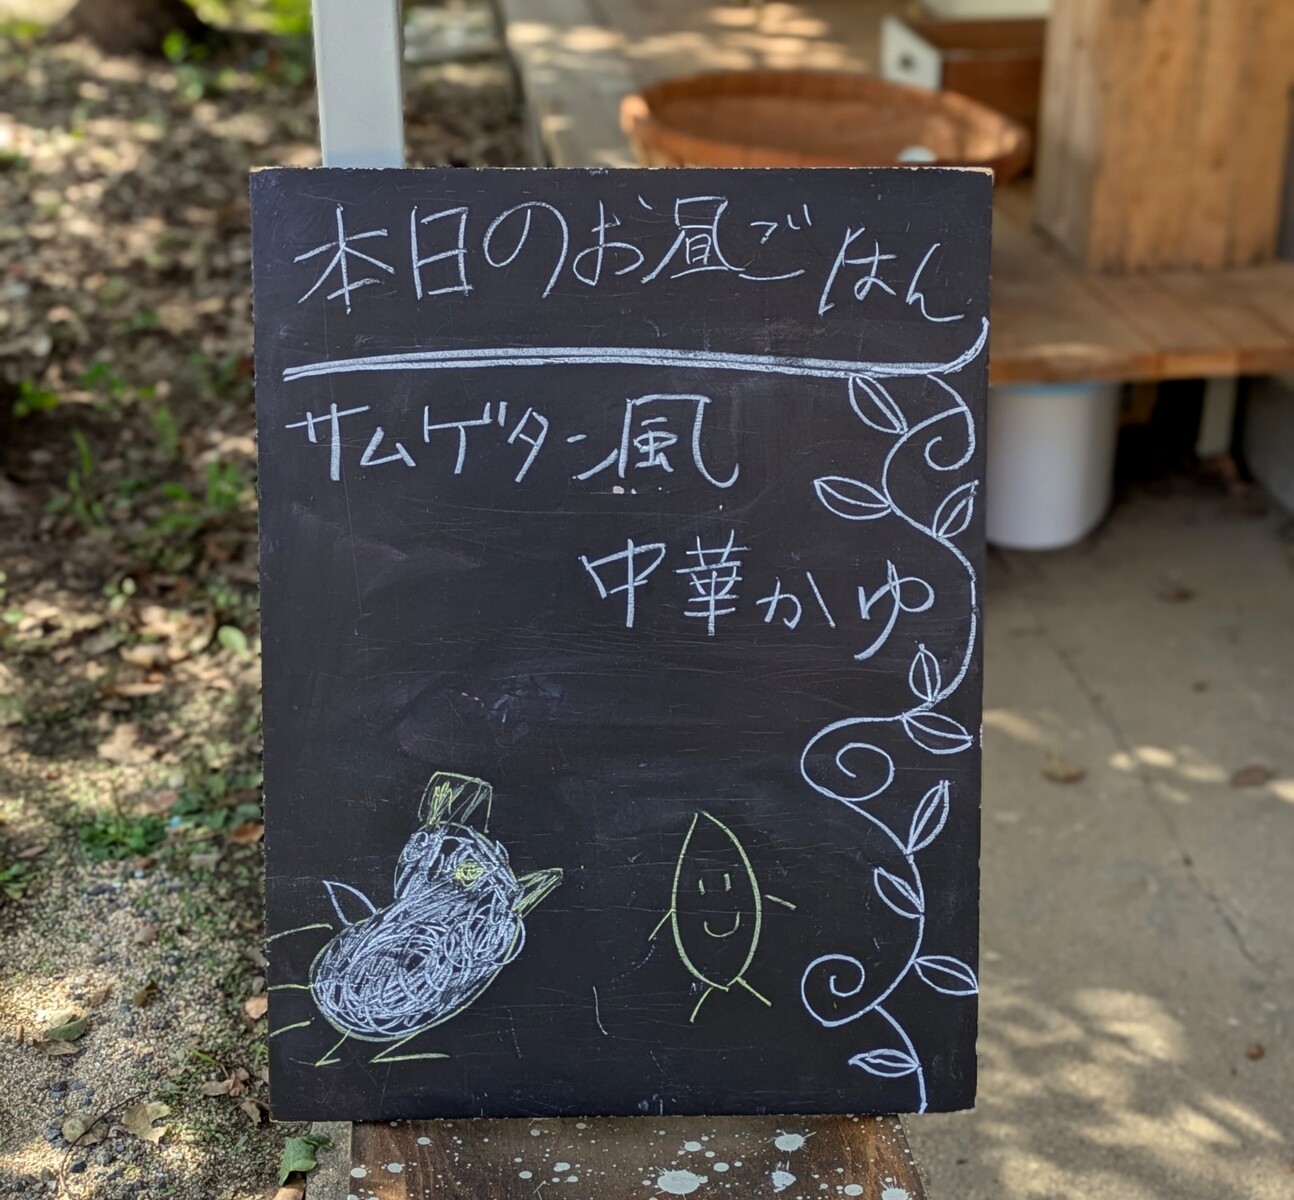 本日のお昼ごはん
サムゲタン風
中華かゆ